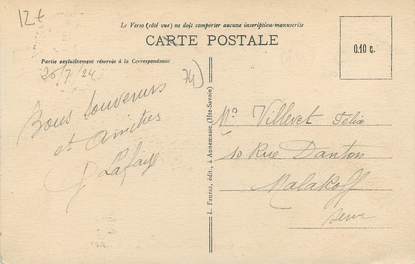 12t
Le Verso (côté vue) ne doit comporter aucune inscription manuscrite
CARTE POSTALE
0.10 c.
Partie exclusivement réservée à la Correspondance
26/7/24
74)
Bons Souvenirs
et amitiés
Lafaye
L. Fauraz, édit., à Annemasse (Hte-Savoie)
Mr Villeret Félix
10 Rue Danton
Malakoff
Seine